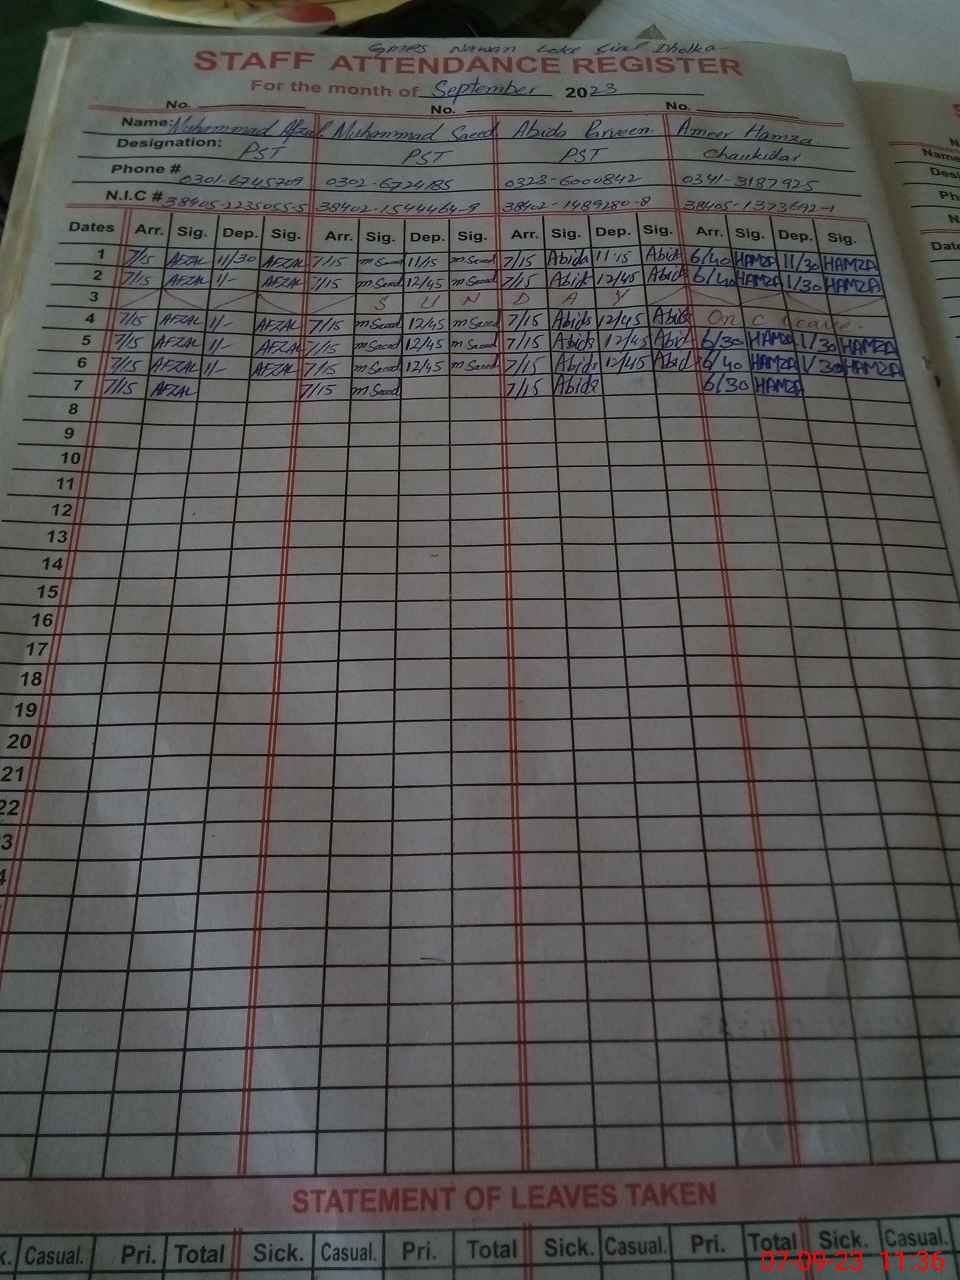 GMPS Nawan Loke Sial Dholka
STAFF ATTENDANCE REGISTER
For the month of September 2023
No. No. No.
Name: Muhammad Afzal Muhammad Saeed Abida Parveen Ameer Hamza
Designation: PST PST PST Chaukidar
Phone # 0301-6745709 0302-6724185 0323-6000842 0341-3187925
N.I.C # 38405-2235055-5 38402-1544464-9 38402-1489280-8 38405-1373692-1
Dates Arr. Sig. Dep. Sig. Arr. Sig. Dep. Sig. Arr. Sig. Dep. Sig. Arr. Sig. Dep. Sig.
1 7/15 AFZAL 11/30 AFZAL 7/15 m Saeed 11/15 m Saeed 7/15 Abida 11:15 Abida 6/40 HAMZA 11/30 HAMZA
2 7/15 AFZAL 1/- AFZAL 7/15 m Saeed 12/45 m Saeed 7/15 Abida 12/45 Abida 6/40 HAMZA 1/30 HAMZA
3 S U N D A Y
4 7/15 AFZAL 1/- AFZAL 7/15 m Saeed 12/45 m Saeed 7/15 Abida 12/45 Abida On C leave.
5 7/15 AFZAL 1/- AFZAL 7/15 m Saeed 12/45 m Saeed 7/15 Abida 12/45 Abida 6/30 HAMZA 1/30 HAMZA
6 7/15 AFZAL 1/- AFZAL 7/15 m Saeed 12/45 m Saeed 7/15 Abida 12/45 Abida 6/40 HAMZA 1/30 HAMZA
7 7/15 AFZAL 7/15 m Saeed 7/15 Abida 6/30 HAMZA
8
9
10
11
12
13
14
15
16
17
18
19
20
21
22
3
4
STATEMENT OF LEAVES TAKEN
k. Casual. Pri. Total Sick. Casual. Pri. Total Sick. Casual. Pri. Total Sick. Casual.
07-09-23 11:36